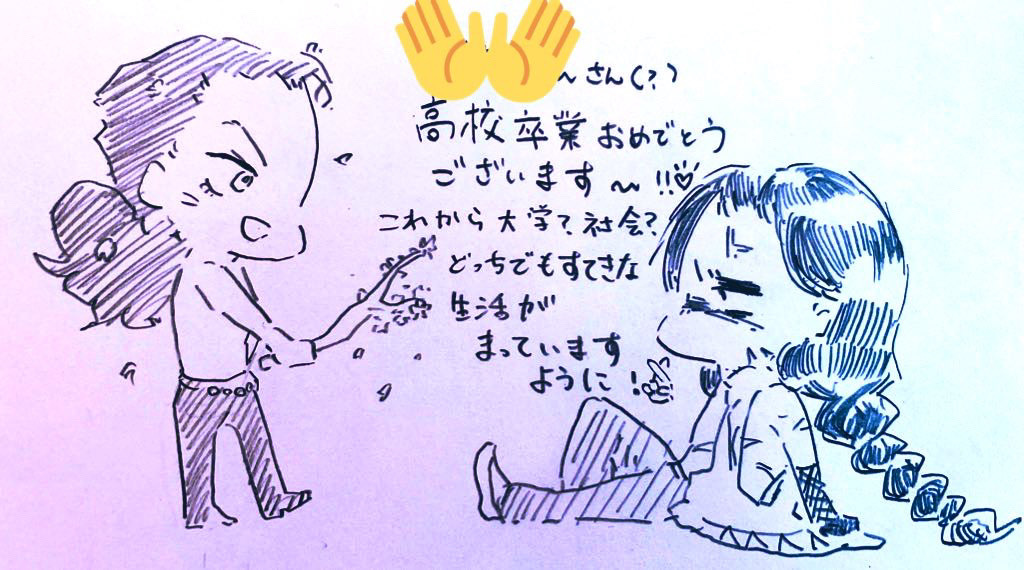 〜さん(?)
高校卒業おめでとう
ございます〜!!♡
これから大学?社会?
どっちでもすてきな
生活が
まっています
ように!